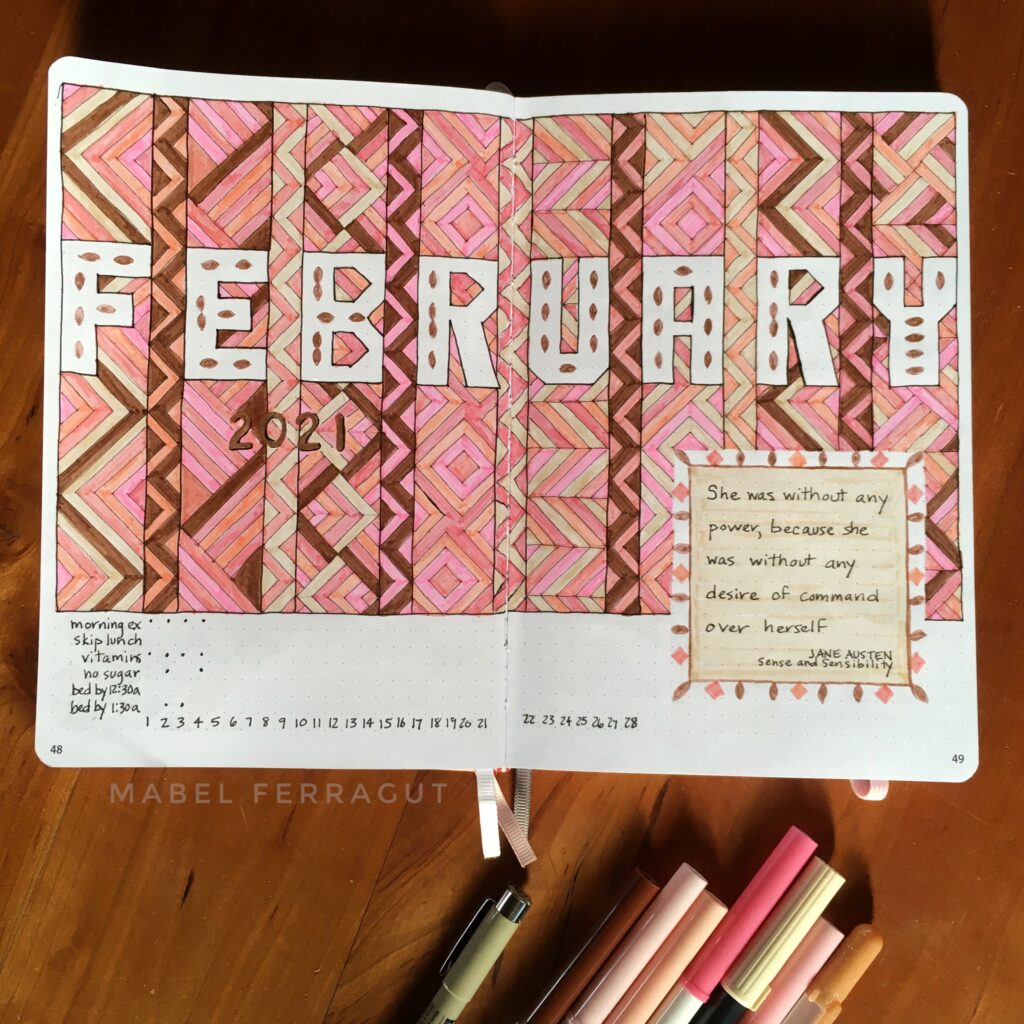 FEBRUARY
2021
She was without any
power, because she
was without any
desire of command
over herself
JANE AUSTEN
Sense and Sensibility
morning ex
skip lunch
vitamins
no sugar
bed by 12:30a
bed by 1:30a
1 2 3 4 5 6 7 8 9 10 11 12 13 14 15 16 17 18 19 20 21 22 23 24 25 26 27 28
48
49
MABEL FERRAGUT